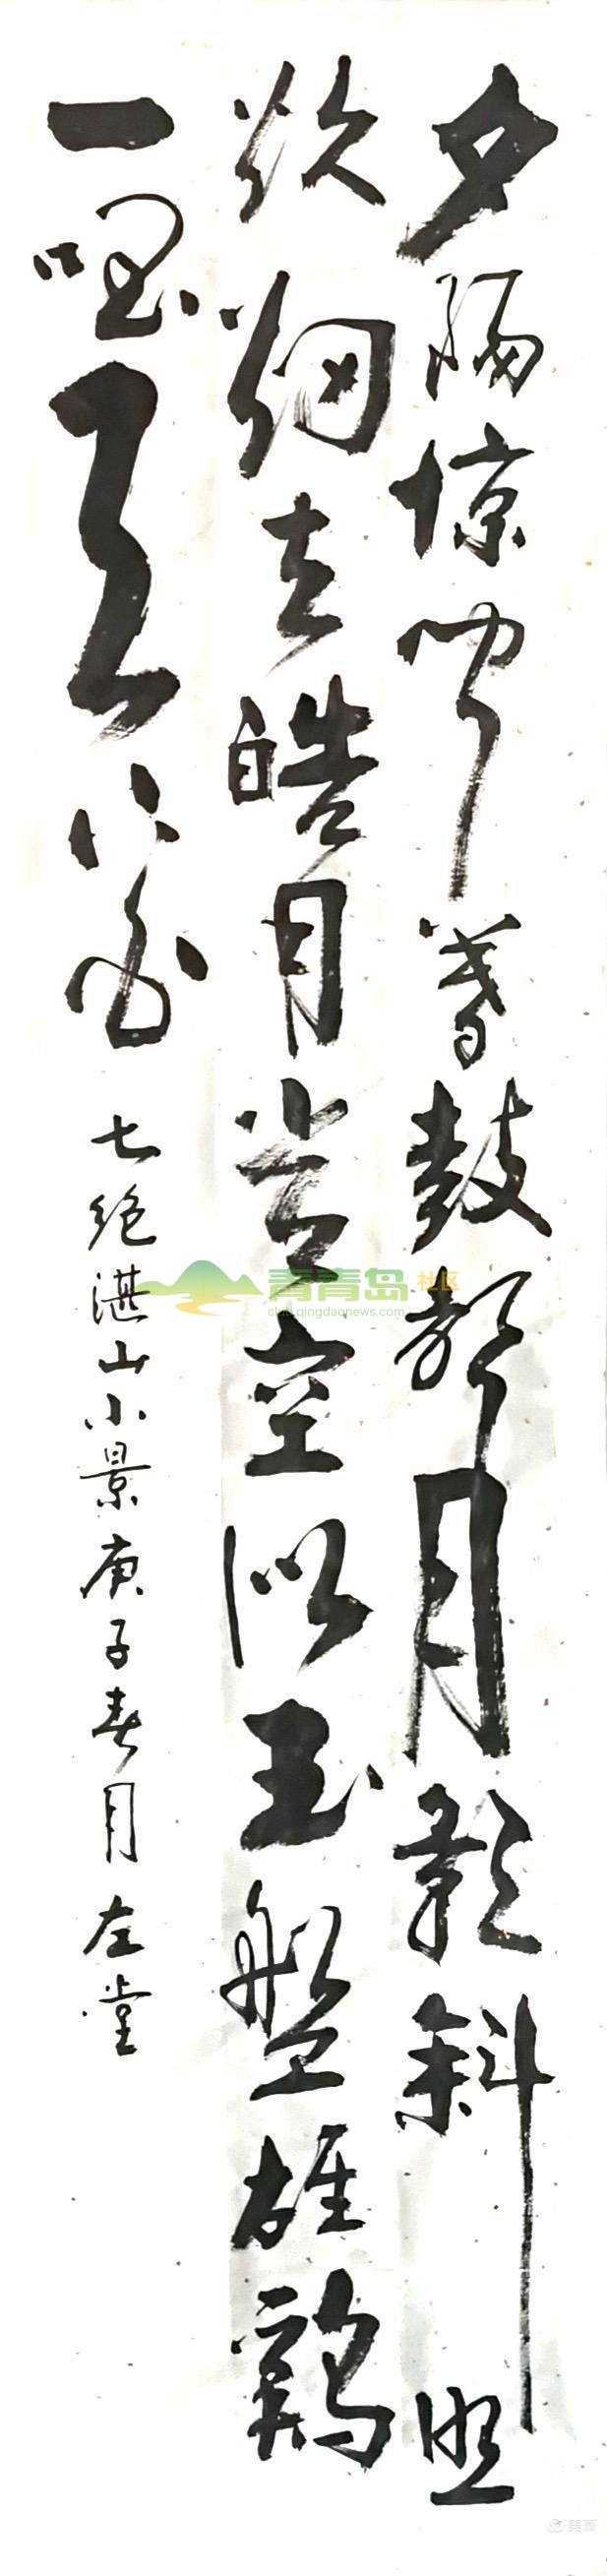 夕陽惊闻暮鼓声月影斜照
炊烟去皓月当空似玉盤雄鷄
一唱天下白
七绝湛山小景庚子春月左堂
青青岛社区
club.qingdaonews.com
美篇